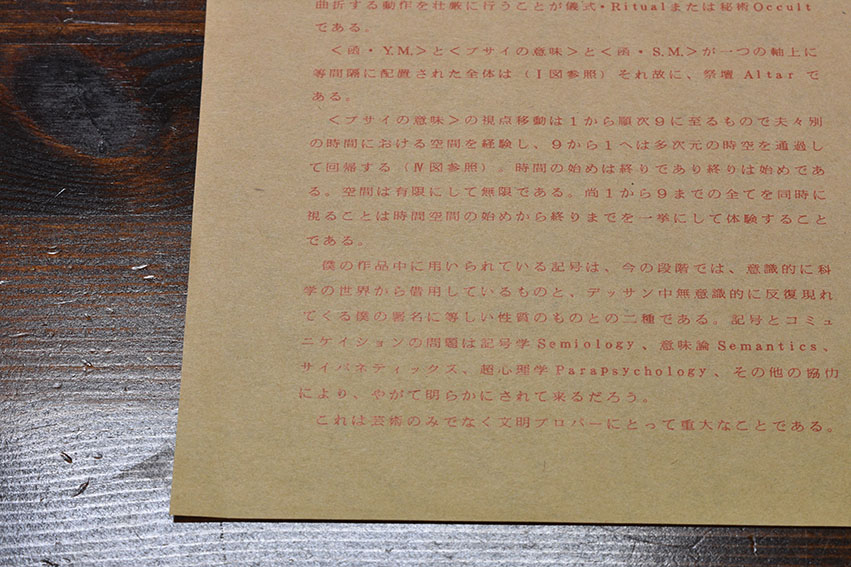 曲折する動作を壮厳に行うことが儀式・Ritualまたは秘術Occult
である。
＜函・Y.M.＞と＜プサイの意味＞と＜函・S.M.＞が一つの軸上に
等間隔に配置された全体は（Ⅰ図参照）それ故に、祭壇 Altar で
ある。
＜プサイの意味＞の視点移動は1から順次9に至るもので夫々別
の時間における空間を経験し、9から1へは多次元の時空を通過し
て回帰する（Ⅳ図参照）。時間の始めは終りであり終りは始めであ
る。空間は有限にして無限である。尚1から9までの全てを同時に
視ることは時間空間の始めから終りまでを一挙にして体験すること
である。
僕の作品中に用いられている記号は、今の段階では、意識的に科
学の世界から借用しているものと、デッサン中無意識的に反復現れ
てくる僕の署名に等しい性質のものとの二種である。記号とコミュ
ニケイションの問題は記号学Semiology、意味論Semantics、
サイバネティックス、超心理学Parapsychology、その他の協力
により、やがて明らかにされて来るだろう。
これは芸術のみでなく文明プロパーにとって重大なことである。